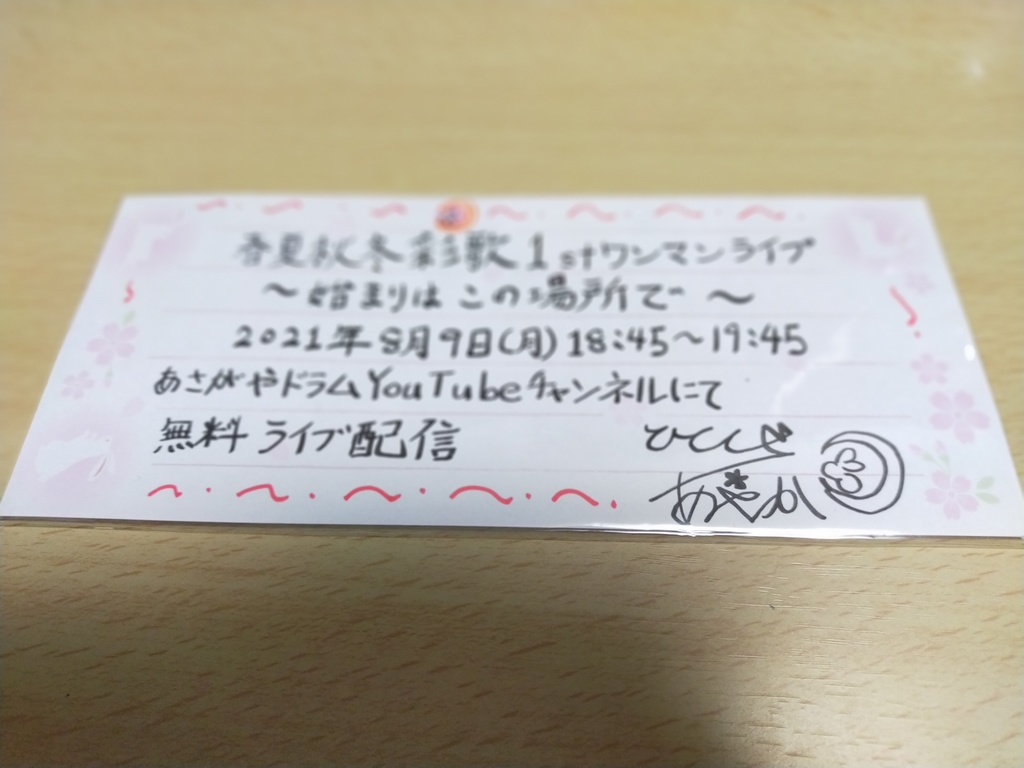 春夏秋冬彩歌1stワンマンライブ
〜始まりはこの場所で〜
2021年8月9日(月)18:45〜19:45
あさがやドラムYouTubeチャンネルにて
無料ライブ配信
ひととせ
あやか